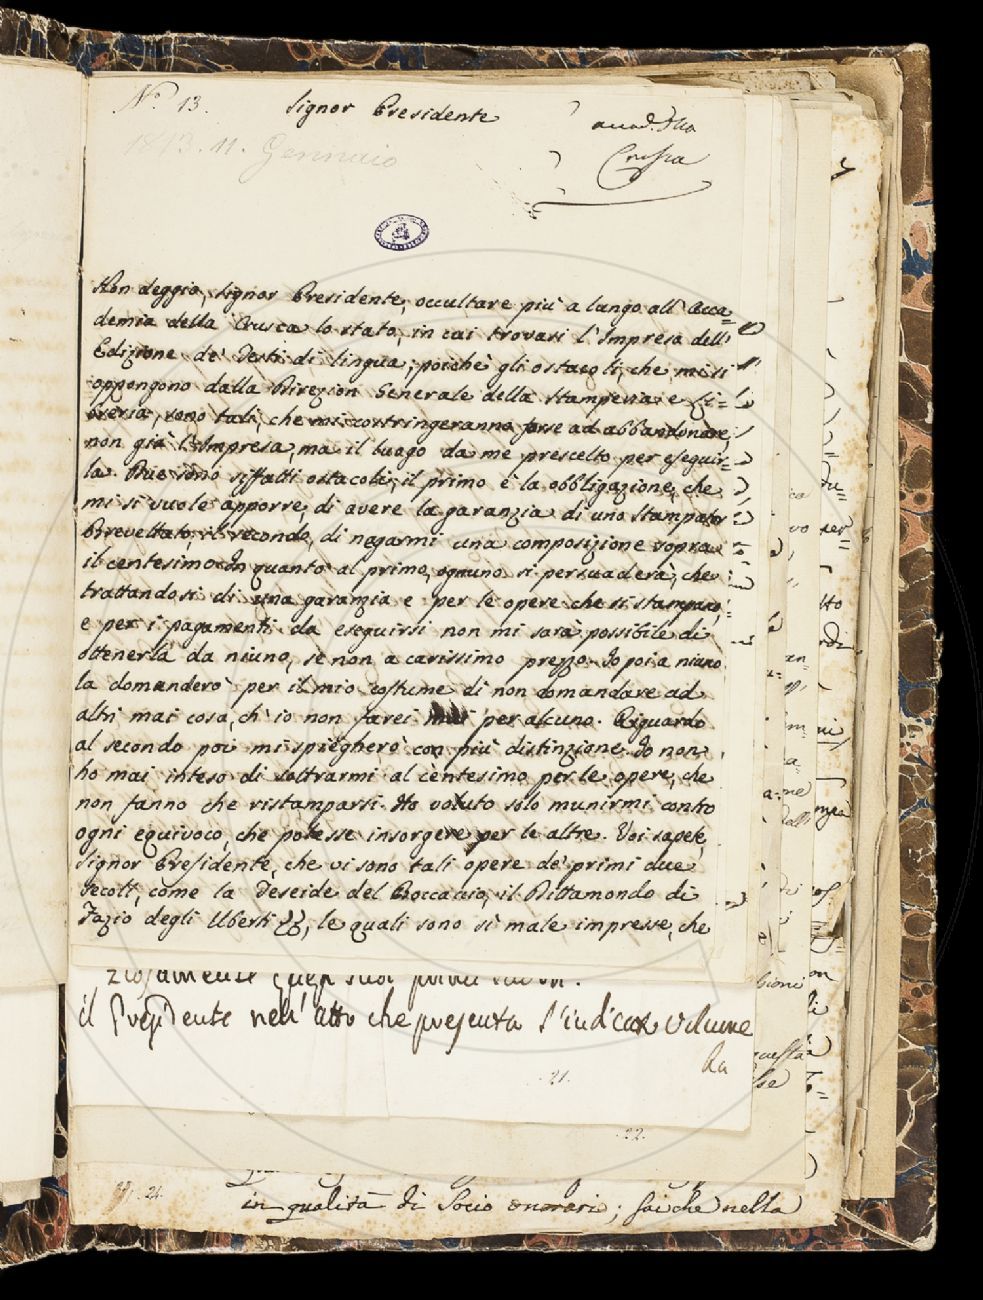 N.° 13.
Signor Presidente
accad. della
Crusca
1813. 11. Gennaio
Non deggio, Signor Presidente, occultare più a lungo all' Acca=
demia della Crusca lo stato, in cui trovasi l'Impresa dell'
Edizione de' Testi di lingua; poichè gli ostacoli, che mi si
oppongono dalla Direzion Generale della Stamperia e Li=
breria, sono tali, che mi costringeranno forse ad abbandonare,
non già l'Impresa, ma il luogo da me prescelto per eseguir=
la. Due sono siffatti ostacoli; il primo è la obbligazione, che
mi si vuole apporre, di avere la garanzia di uno Stampator
Brevettato; il secondo, di negarmi una composizione sopra
il centesimo. In quanto al primo, ognuno si persuaderà, che
trattandosi di una garanzia e per le opere che si stampano,
e per i pagamenti da eseguirsi non mi sarà possibile di
ottenerla da niuno, se non a carissimo prezzo. Io poi a niuno
la domanderò per il mio costume di non domandare ad
altri mai cosa, ch' io non farei per alcuno. Riguardo
al secondo poi mi spiegherò con più distinzione. Io non
ho mai inteso di sottrarmi al centesimo per le opere, che
non fanno che ristamparsi. Ho voluto solo munirmi contro
ogni equivoco, che potesse insorgere per le altre. Voi sapete,
Signor Presidente, che vi sono tali opere de' primi due
secoli, come la Teseide del Boccaccio, il Dittamondo di
Fazio degli Uberti &c, le quali sono sì male impresse, che
il Presidente nell' atto che presenta l'indicato volume
ha
21.
22.
in qualità di Socio onorario; sai che nella